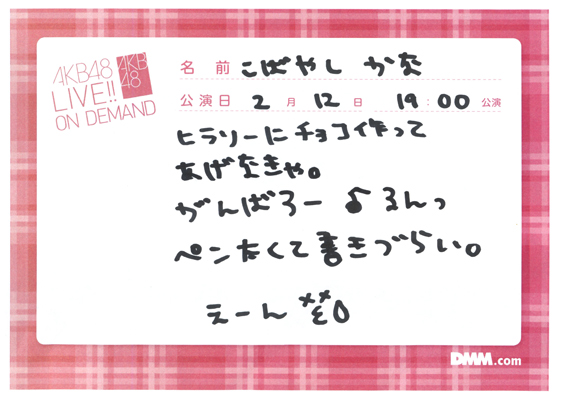 AKB48
LIVE!!
ON DEMAND
AKB
48
名 前 こばやし かな
公演日 2 月 12 日 19:00 公演
ヒラリーにチョコ作って
あげなきゃ。
がんばろー ♪ るんっ
ペンなくて書きづらい。
えーん
DMM.com